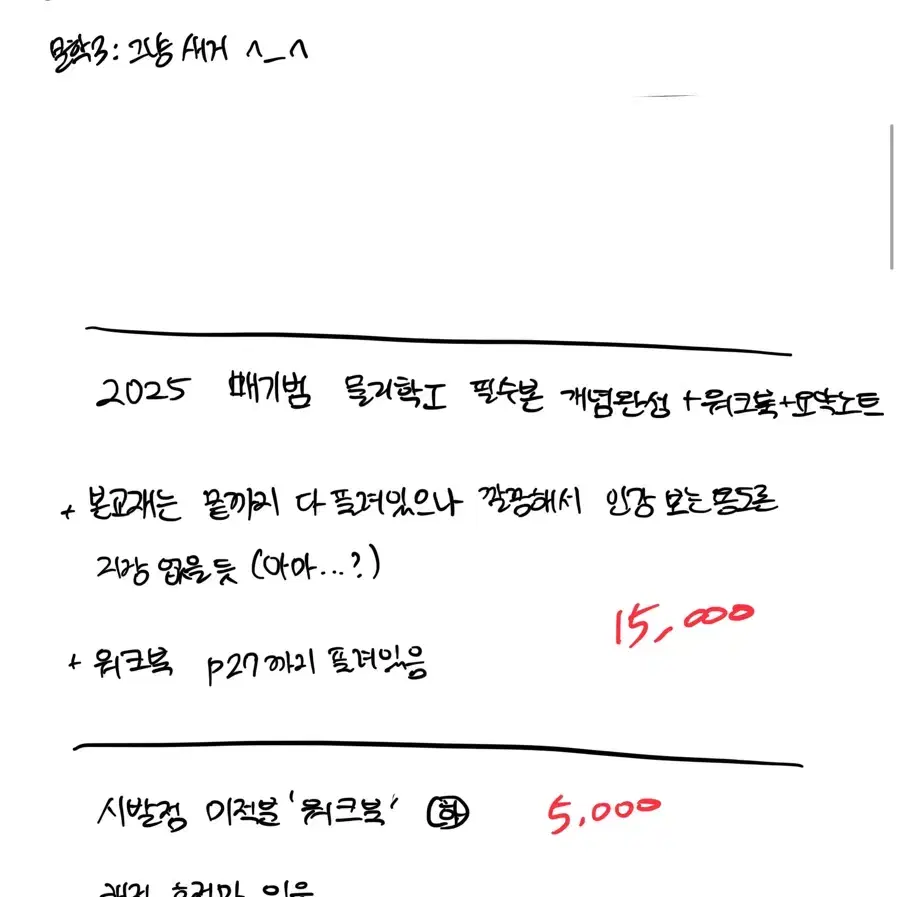 문학3: 그냥 새거 ^_^
2025 배기범 물리학I 필수본 개념완성 +워크북+요약노트
+ 본교재는 끝까지 다 풀려있으나 깔끔해서 인강 보는 용도론
지장 없을 듯 (아마...?)
15,000
+ 워크북 p27까지 풀려있음
시발점 미적분 '워크북' 하 5,000
있음